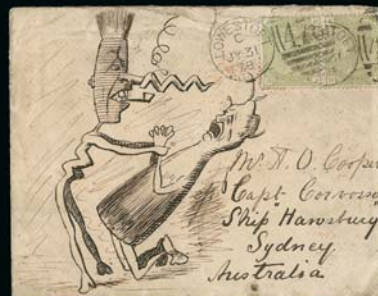 LOWESTOFT
C
JY 31
78
Mr. A. O. Cooper
Capt Corvosso
Ship Hawsbury
Sydney
Australia